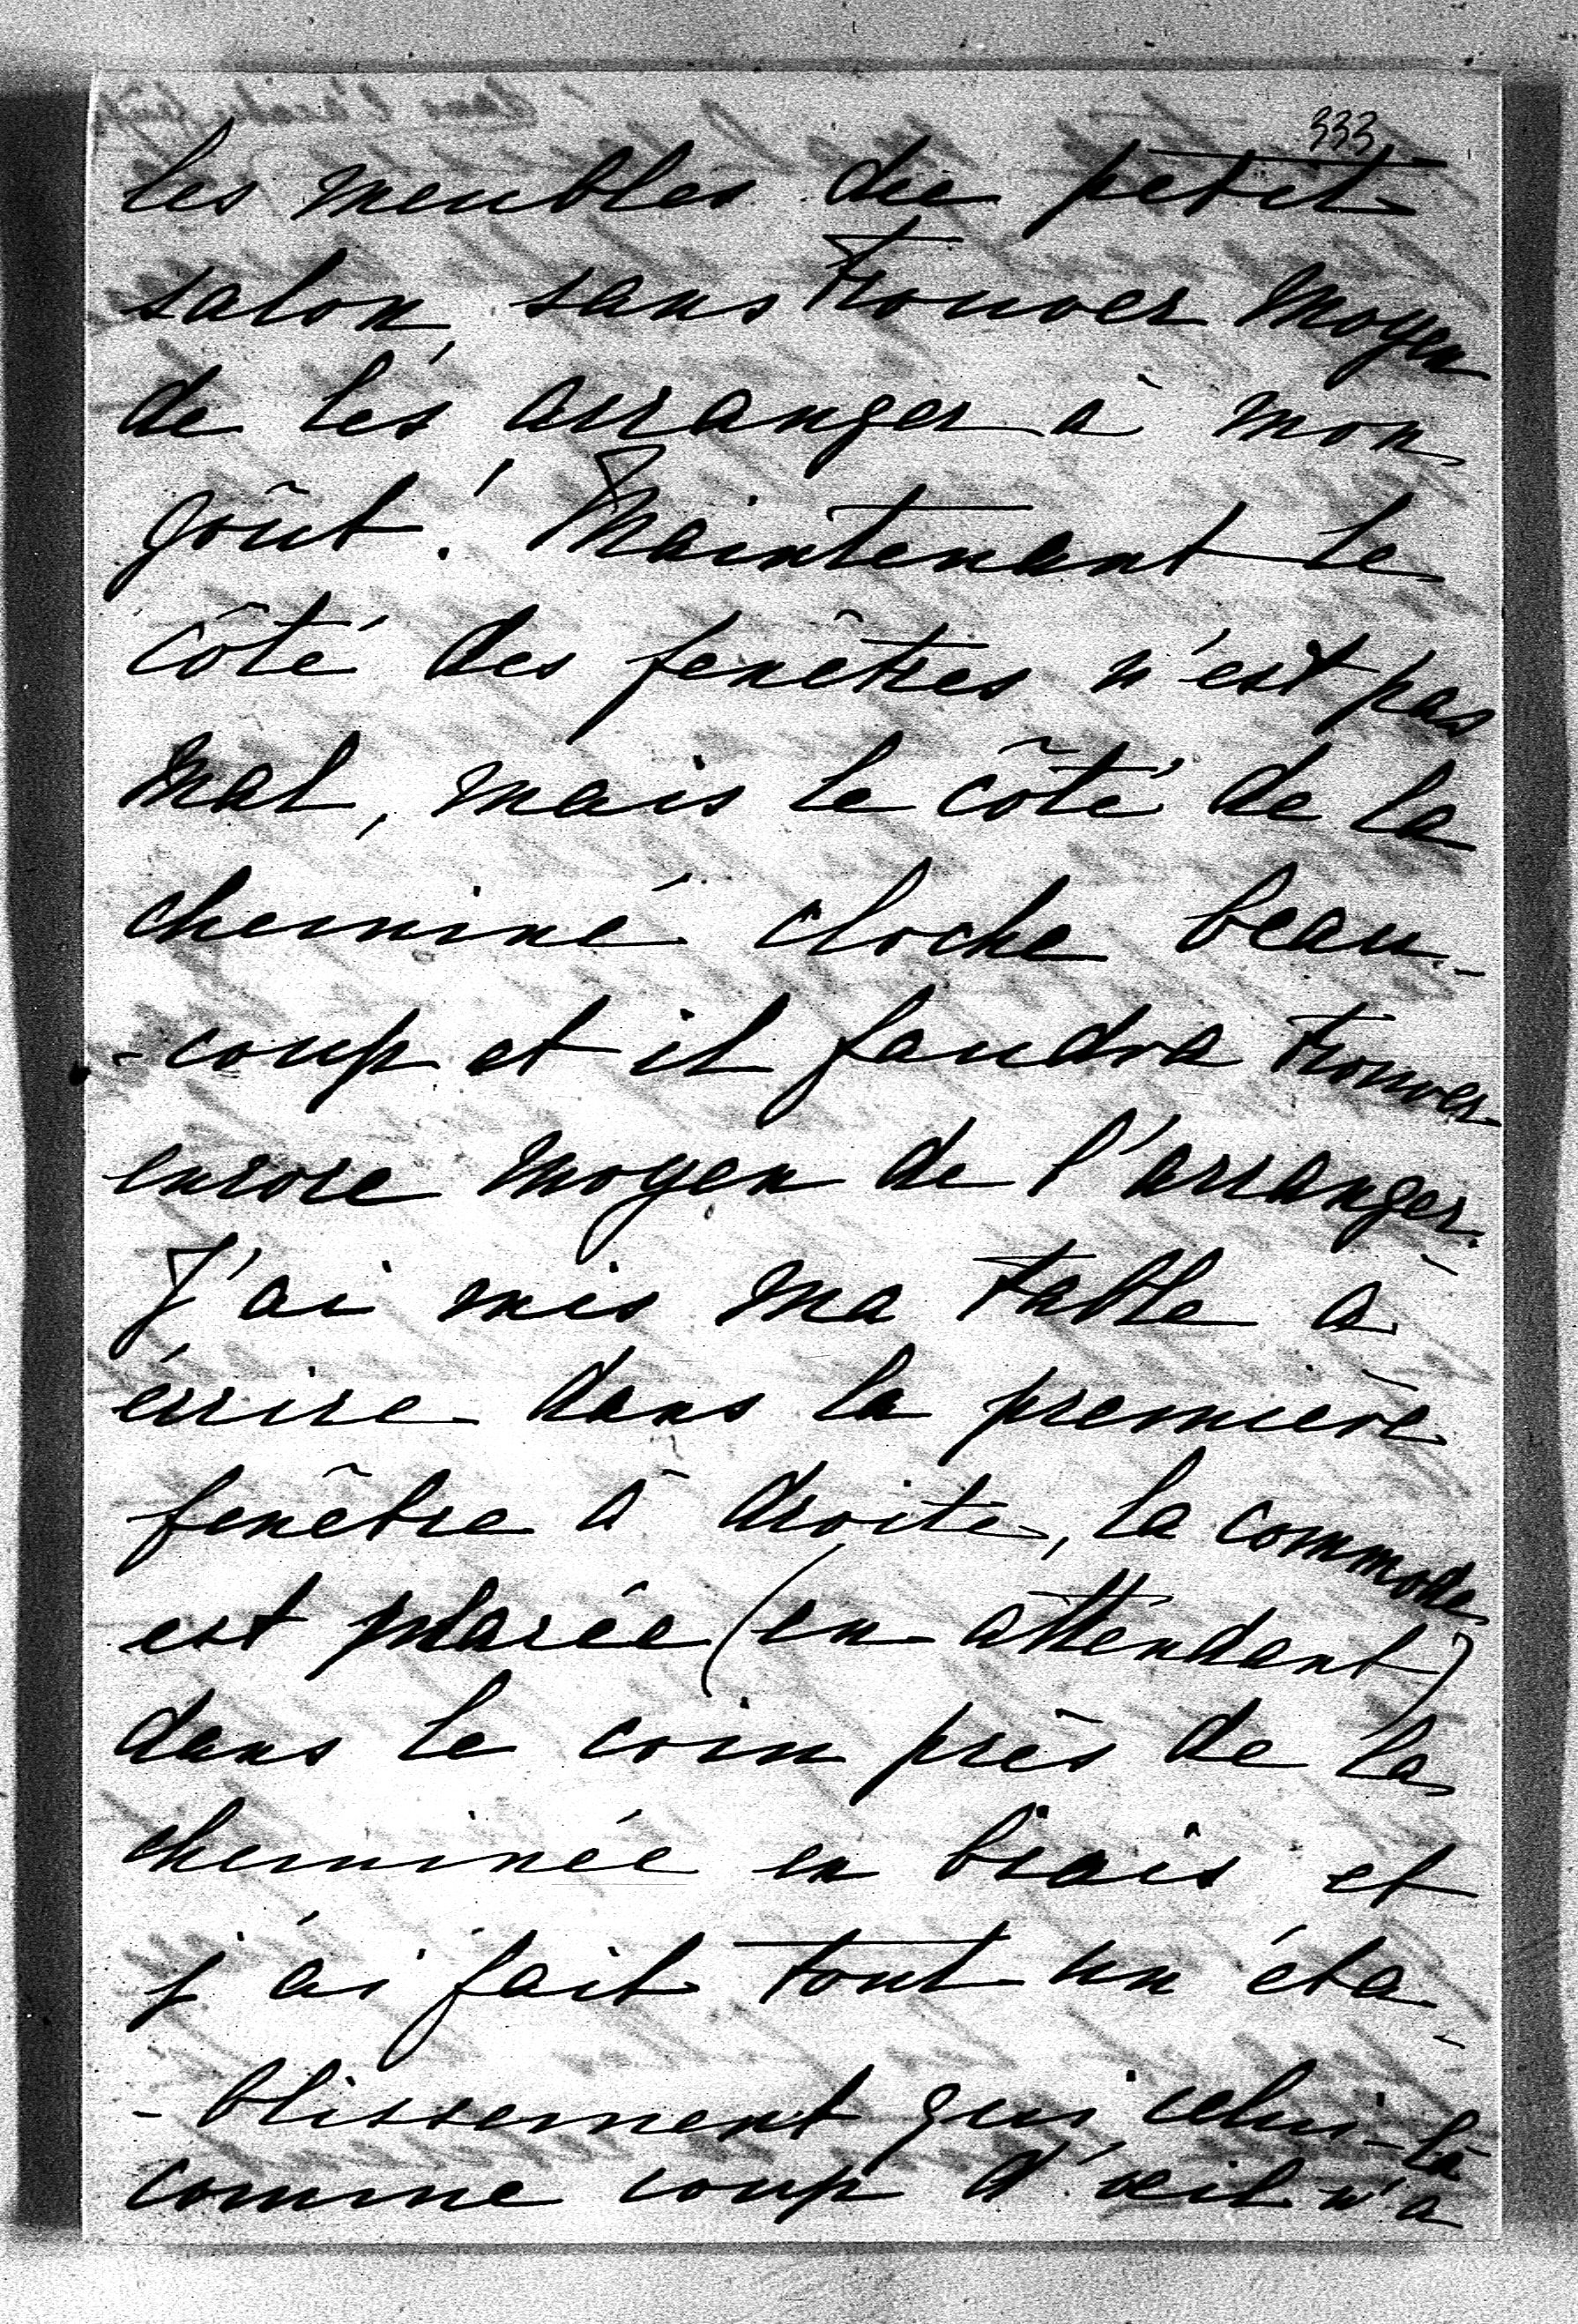 333
les meubles du petit
salon, sans trouver moyen
de les arranger à mon
goût! Maintenant le
côté des fenêtres n'est pas
mal, mais le côté de la
cheminé cloche beau-
-coup et il faudra trouver
encore moyen de l'arranger.
J'ai mis ma table à
écrire dans la première
fenêtre à droite, la commode
est placée (en attendant)
dans le coin près de la
cheminée en biais et
j'ai fait tout un éta-
-blissement qui celui-là
comme coup d'œil n'a